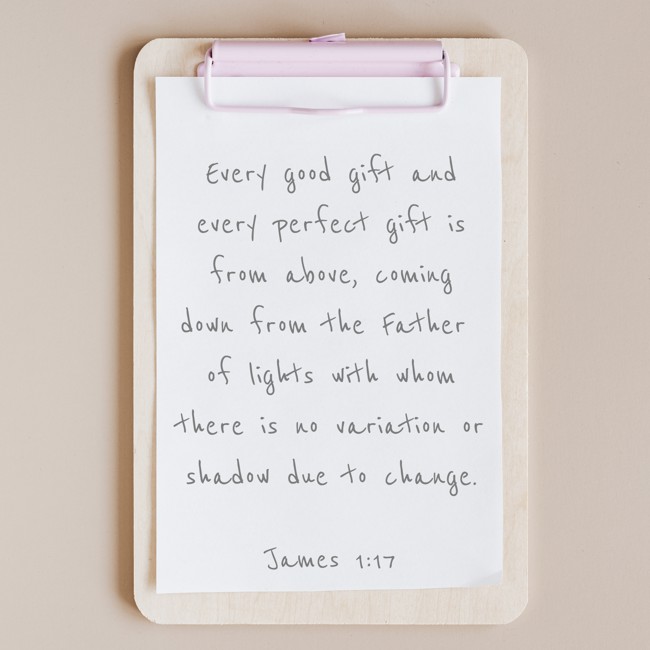 Every good gift and
every perfect gift is
from above, coming
down from the Father
of lights with whom
there is no variation or
shadow due to change.
James 1:17